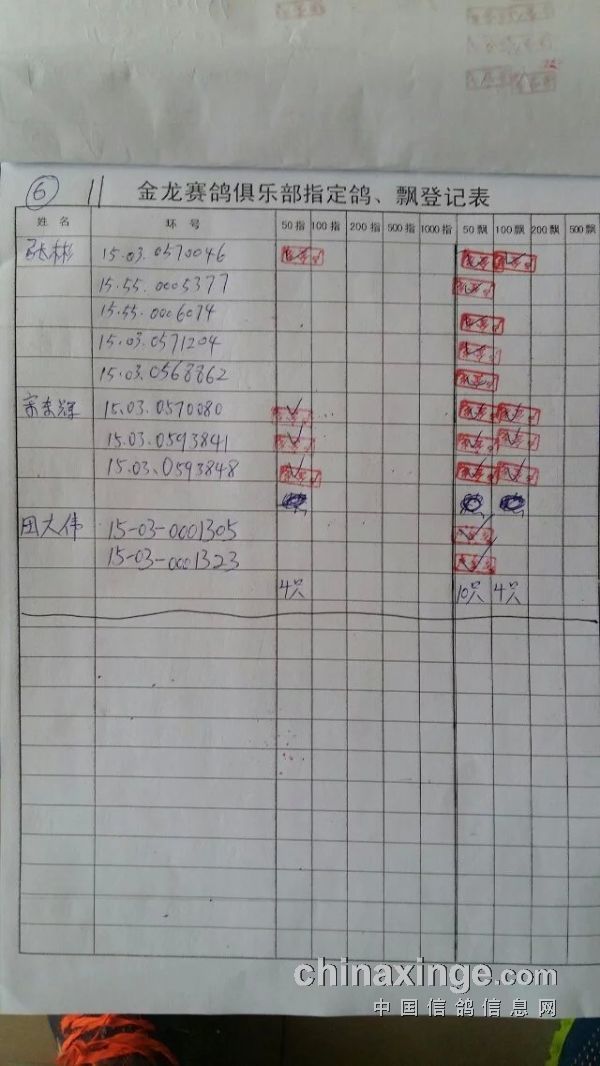 ⑥ 11 金龙赛鸽俱乐部指定鸽、飘登记表
姓 名 环 号 50指 100指 200指 500指 1000指 50飘 100飘 200飘 500飘
15.03.0570046
15.55.0005377
15.55.0006074
15.03.0571204
15.03.0568862
15.03.0570080
15.03.0593841
15.03.0593848
田大伟 15-03-0001305
15-03-0001323
4只 10只 4只
chinaxinge.com
中国信鸽信息网